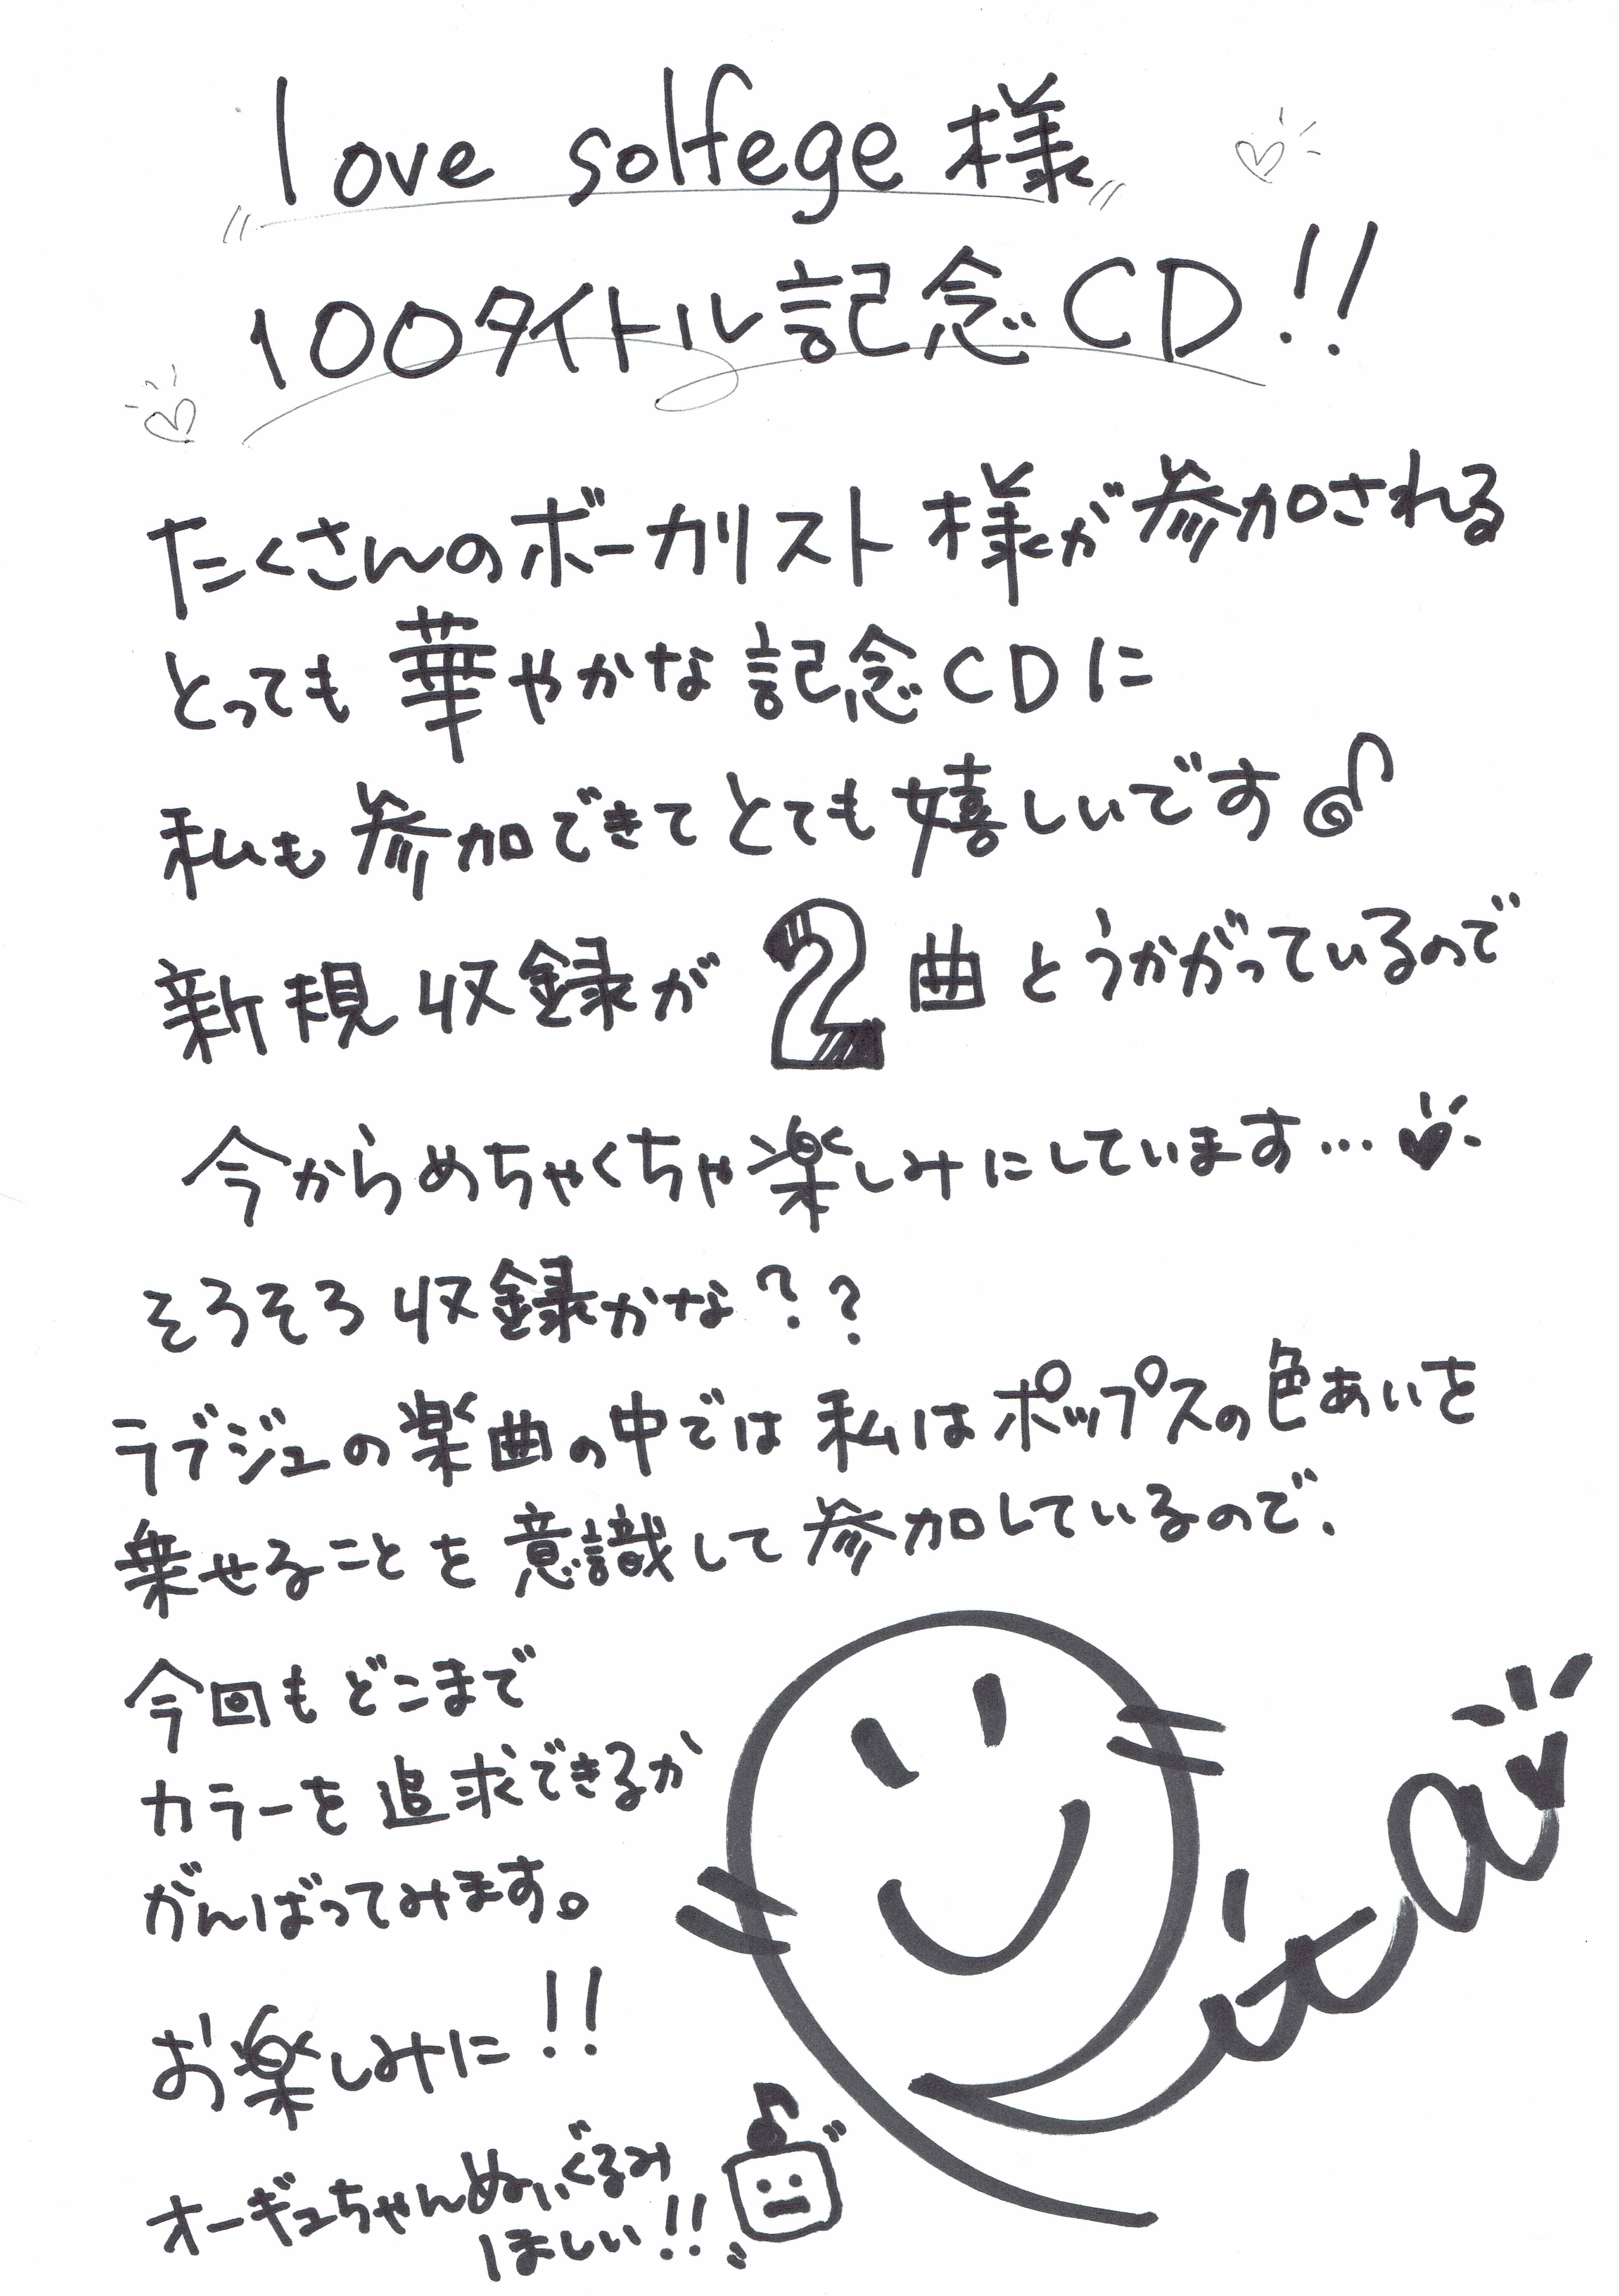 love solfege 様
100タイトル記念CD!!
たくさんのボーカリスト様が参加される
とっても華やかな記念CDに
私も参加できてとても嬉しいです♪
新規収録が2曲とうかがっているので
今からめちゃくちゃ楽しみにしています…♥
そろそろ収録かな??
ラブジュの楽曲の中では私はポップスの色あいを
乗せることを意識して参加しているので、
今回もどこまで
カラーを追求できるか
がんばってみます。
お楽しみに!!
オーギュちゃんぬいぐるみ
ほしい!!